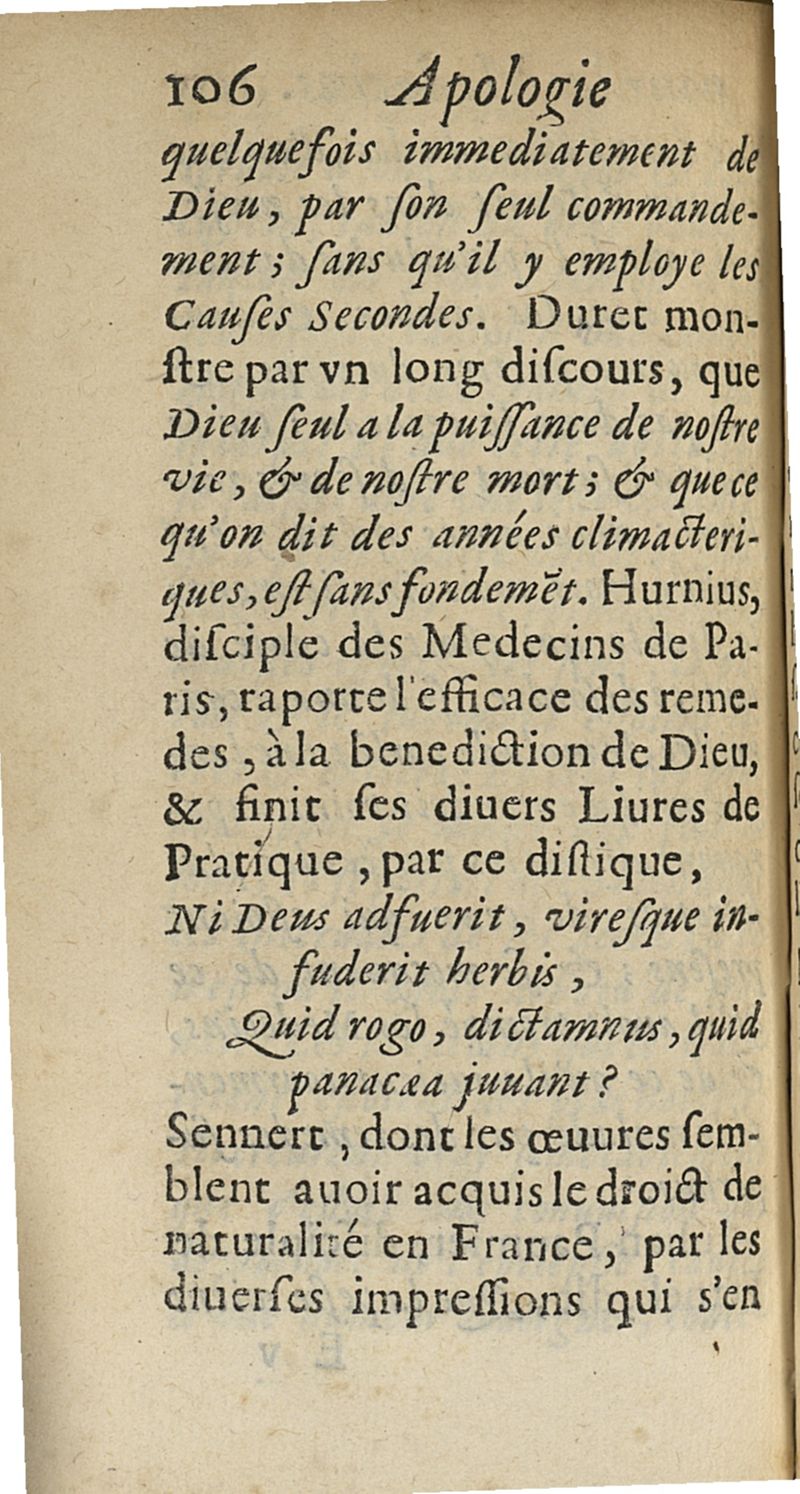 106 Apologie
quelquefois immediatement de
Dieu, par ſon ſeul commande-
ment; ſans qu'il y employe les
Cauſes Secondes. Duret mon-
ſtre par vn long diſcours, que
Dieu ſeul a la puiſſance de noſtre
vie, & de noſtre mort; & que ce
qu'on dit des années climacteri-
ques, eſt ſans fondemẽt. Hurnius,
diſciple des Medecins de Pa-
ris, raporte l'efficace des reme-
des, à la benediction de Dieu,
& finit ſes diuers Liures de
Pratique, par ce diſtique,
Ni Deus adfuerit, vireſque in-
fuderit herbis,
Quid rogo, dictamnus, quid
panacæa juuant?
Sennert, dont les œuures ſem-
blent auoir acquis le droict de
naturalité en France, par les
diuerſes impreſſions qui s'en